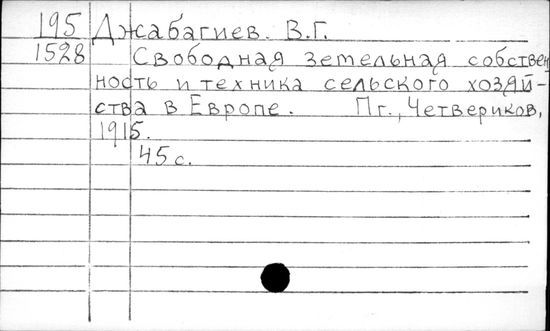 195 Джабагиев. В.Г.
1528 Свободная земельная собствен
ность и техника сельского хозяй-
ства в Европе. Пг., Четвериков,
1915.
45 с.